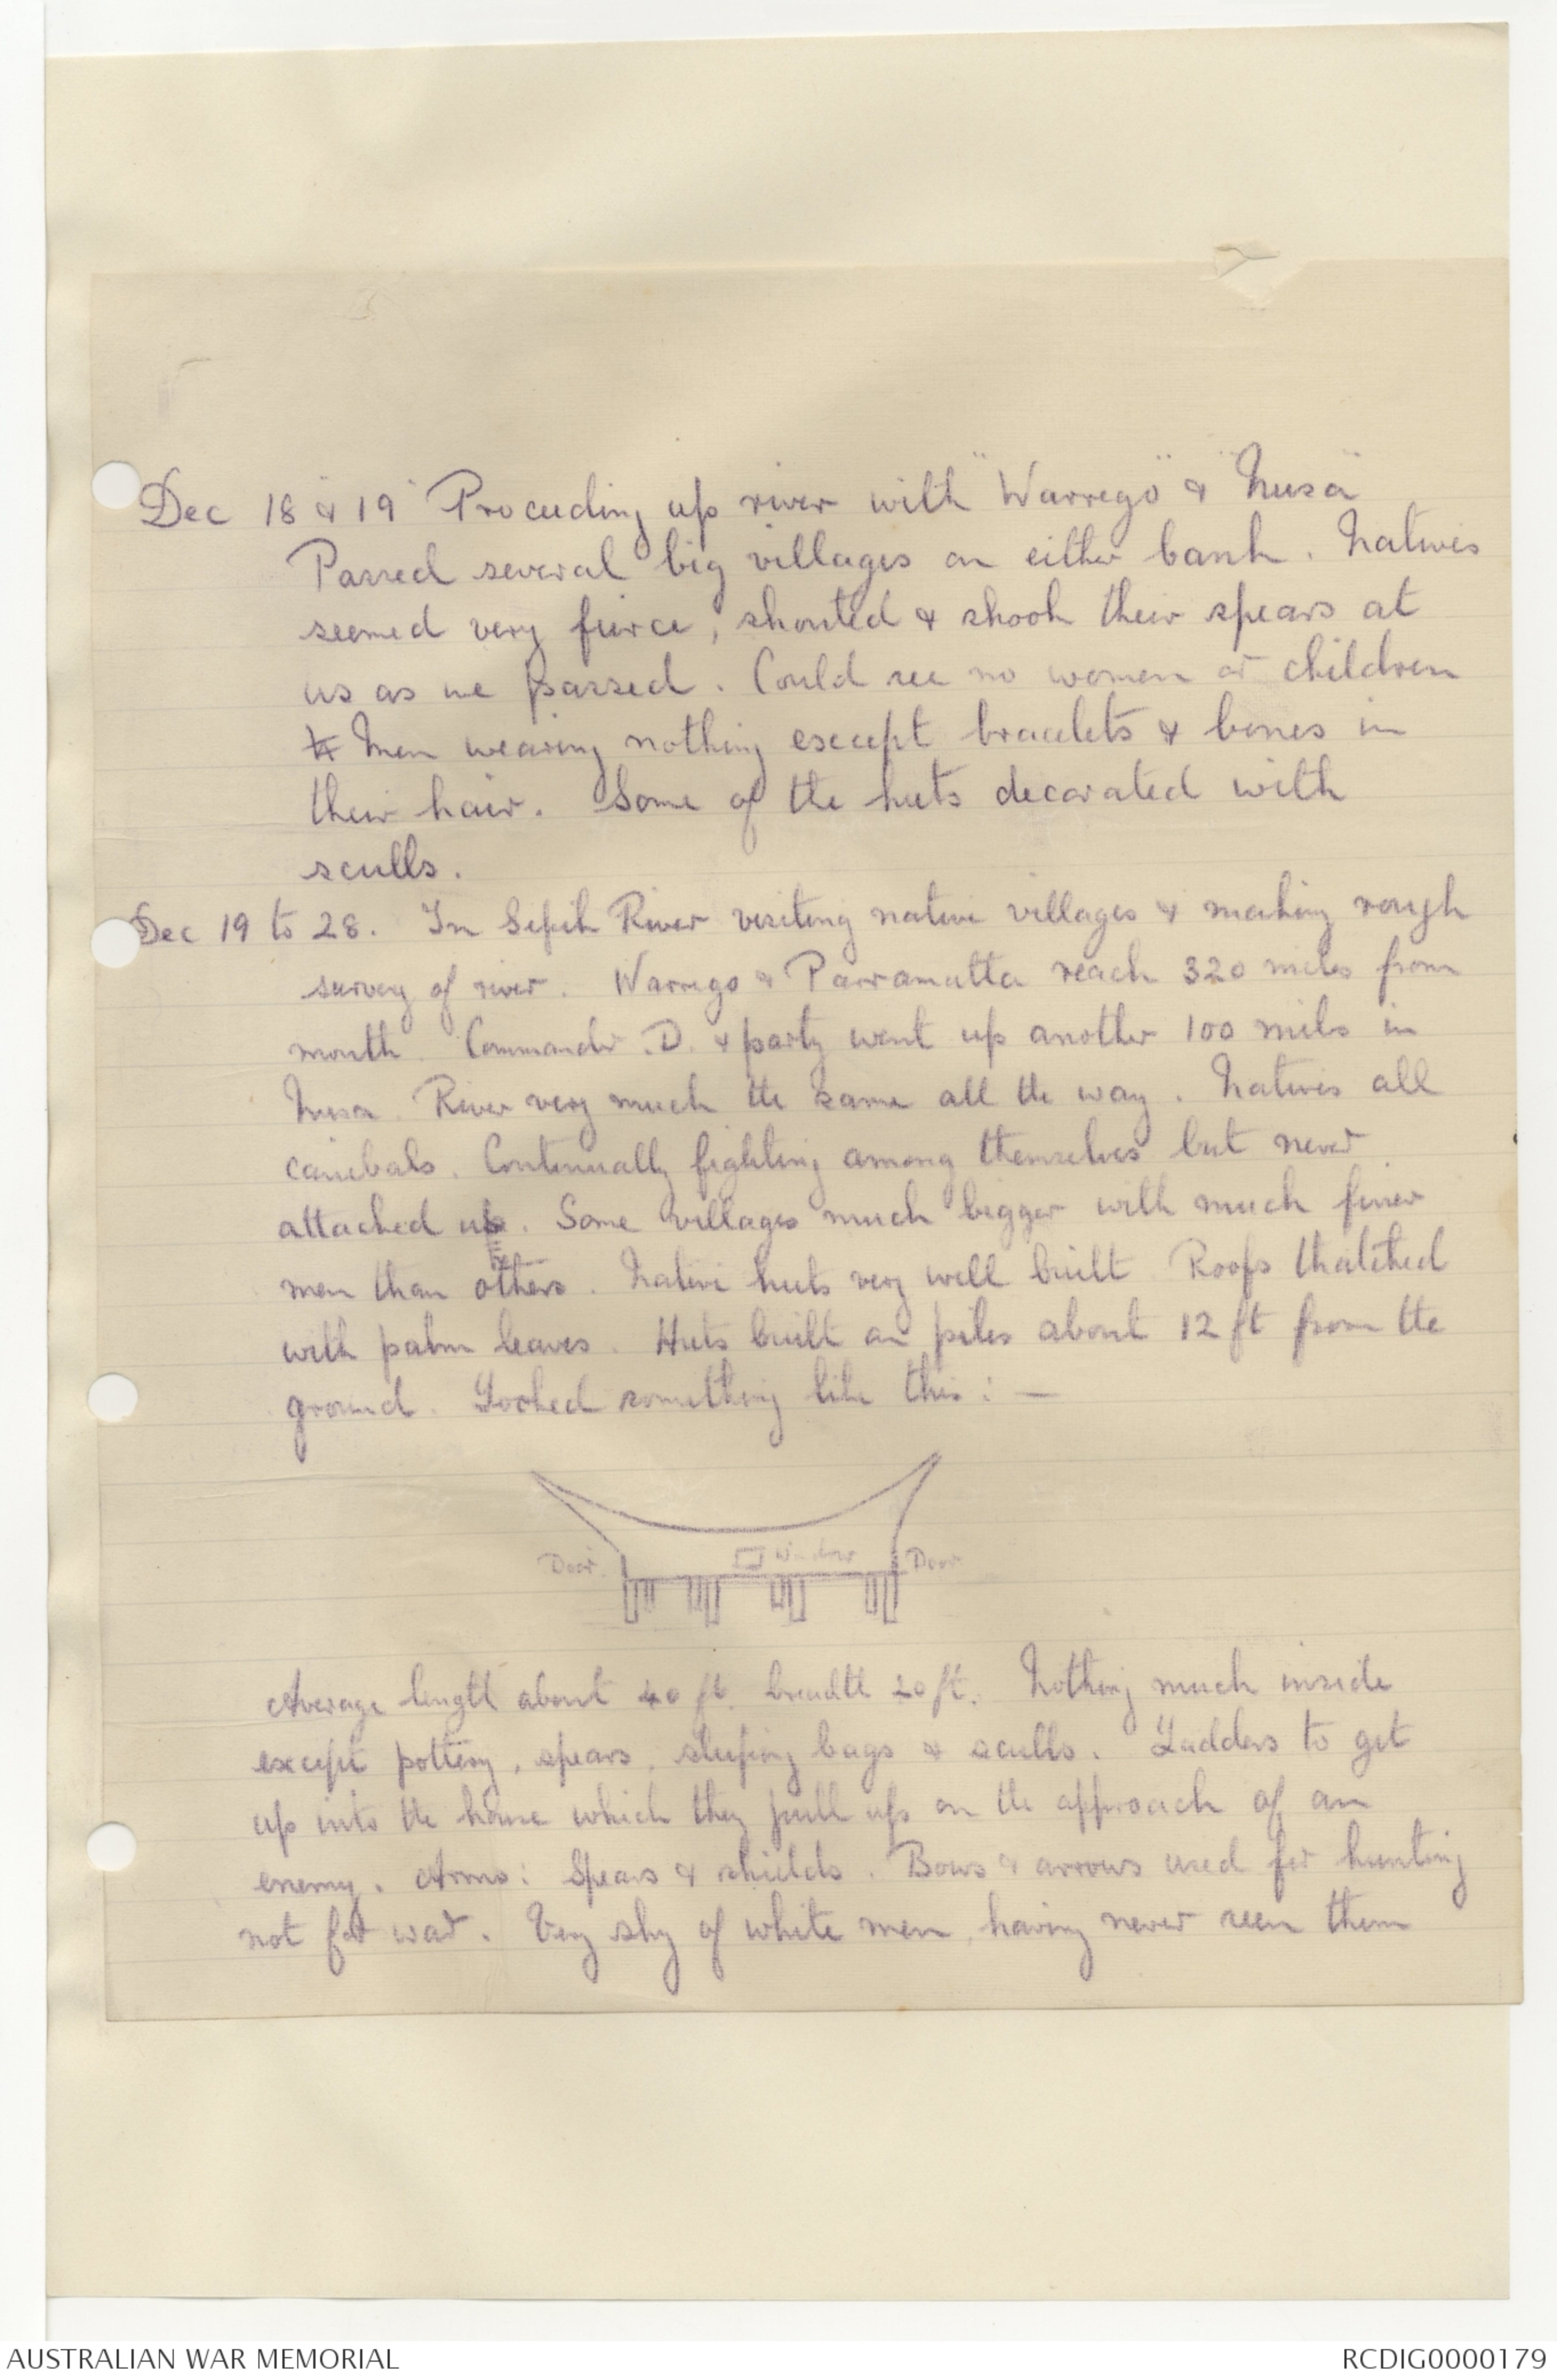 Dec 18 & 19 Proceeding up river with "Warrego" & "Nusa"
Passed several big villages on either bank. Natives
seemed very fierce, shouted & shook their spears at
us as we passed. Could see no women or children
Men wearing nothing except bracelets & bones in
their hair. Some of the huts decorated with
sculls.
Dec 19 to 28. In Sepik River visiting native villages & making rough
survey of river. Warrego & Parramatta reach 320 miles from
mouth. Commander .D. & party went up another 100 miles in
Nusa. River very much the same all the way. Natives all
canibals. Continually fighting among themselves but never
attacked us. Some villages much bigger with much finer
men than others. Native huts very well built Roofs thatched
with palm leaves. Huts built on piles about 12 ft from the
ground. Looked something like this: —
Door Window Door
Average length about 40 ft. breadth 20 ft. Nothing much inside
except pottery, spears, sleeping bags & sculls. Ladders to get
up into the house which they pull up on the approach of an
enemy. Arms: Spears & shields. Bows & arrows used for hunting
not for war. Very shy of white men, having never seen them
AUSTRALIAN WAR MEMORIAL
RCDIG0000179